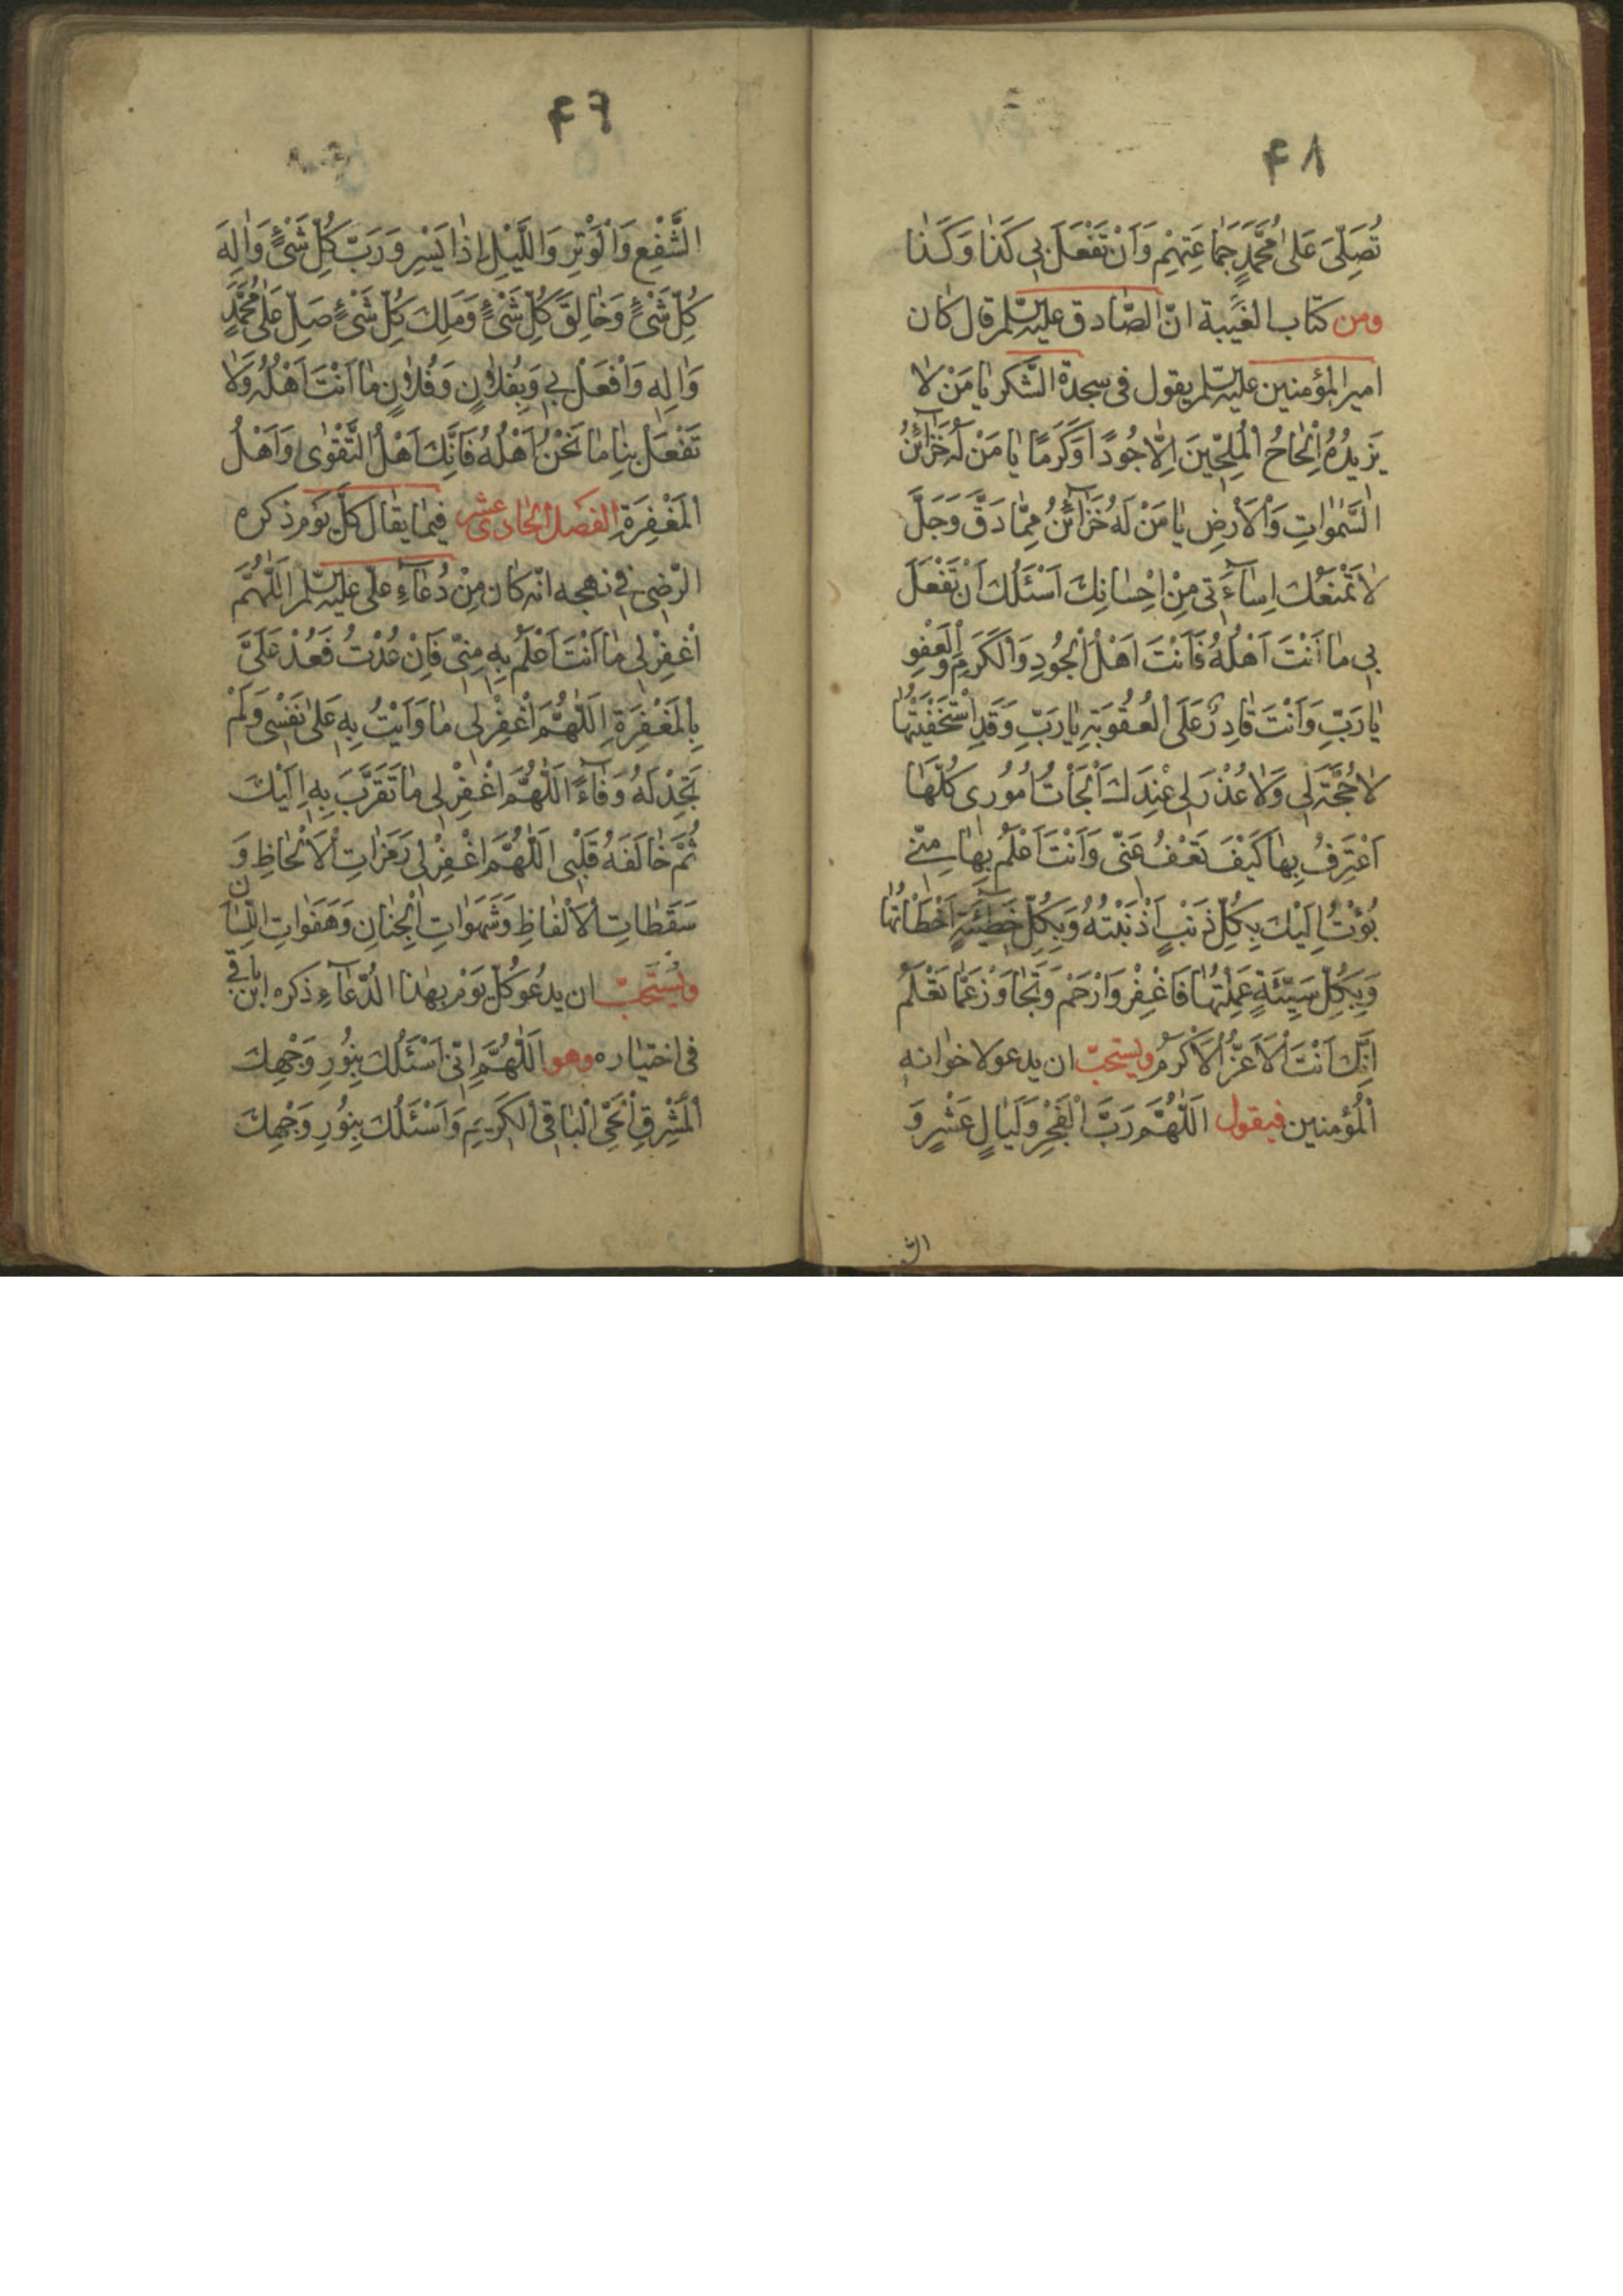 ۴۸
تُصَلِّىَ عَلىٰ مُحَمَّدٍ جَمٰاعَتِهِمْ وَاَنْ تَفْعَلَ بِى كَذٰا وَكَذٰا
ومن كتاب الغَيبة انّ الصّادق عليه السّلم قال كان
امير المؤمنين عليه السّلم يقول فى سجدة الشّكر يٰا مَنْ لاٰ
يَزيدُهُ اِلْحٰاحُ الْمُلِحّينَ اِلّاٰ جُودًا وَكَرَمًا يٰا مَنْ لَهُ خَزٰآئِنُ
السَّمٰوٰاتِ وَالْاَرْضِ يٰا مَنْ لَهُ خَزٰآئِنُ مِمّٰا دَقَّ وَجَلَّ
لاٰ تَمْنَعُكَ اِسٰآءَتى مِنْ اِحْسٰانِكَ اَسْئَلُكَ اَنْ تَفْعَلَ
بى مٰا اَنْتَ اَهْلُهُ فَاَنْتَ اَهْلُ الْجُودِ وَالْكَرَمِ وَالْعَفْوِ
يٰا رَبِّ وَاَنْتَ قٰادِرٌ عَلَى الْعُقُوبَةِ يٰا رَبِّ وَقَدِ اسْتَحَقَّيْتُهٰا
لاٰ حُجَّةَ لى وَلاٰ عُذْرَ لى عِنْدَكَ اَلْجَاْتُ اُمُورى كُلَّهٰا
اَعْتَرِفُ بِهٰا كَيْفَ تَعْفُ عَنّى وَاَنْتَ اَعْلَمُ بِهٰا مِنّى
بُؤْتُ اِلَيْكَ بِكُلِّ ذَنْبٍ اَذْنَبْتُهُ وَبِكُلِّ خَطيئَةٍ اَخْطَاْتُهٰا
وَبِكُلِّ سَيِّئَةٍ عَمِلْتُهٰا فَاغْفِرْ وَارْحَمْ وَتَجٰاوَزْ عَمّٰا تَعْلَمُ
اِنَّكَ اَنْتَ الْاَعَزُّ الْاَكْرَمُ ويستحبّ ان يدعو لاخوانه
الْمُؤمنين فيقول اَللّٰهُمَّ رَبَّ الْفَجْرِ وَلَيٰالٍ عَشْرٍ وَ
الش
۴۹
الشَّفْعِ وَالْوَتْرِ وَاللَّيْلِ اِذٰا يَسْرِ وَرَبَّ كُلِّ شَىْءٍ وَاِلٰهَ
كُلِّ شَىْءٍ وَخٰالِقَ كُلِّ شَىْءٍ وَمَلِكَ كُلِّ شَىْءٍ صَلِّ عَلىٰ مُحَمَّدٍ
وَاٰلِهِ وَافْعَلْ بى وَبِفُلاٰنٍ وَفُلاٰنٍ مٰا اَنْتَ اَهْلُهُ وَلاٰ
تَفْعَلْ بِنٰا مٰا نَحْنُ اَهْلُهُ فَاِنَّكَ اَهْلُ التَّقْوٰى وَاَهْلُ
الْمَغْفِرَةِ الفصل الحادى عشر فيما يقال كلّ يوم ذكره
الرّضى فى نهجه انّه كان مِنْ دُعٰآءِ علىّ عليه السّلم اَللّٰهُمَّ
اغْفِرْ لى مٰا اَنْتَ اَعْلَمُ بِهِ مِنّى فَاِنْ عُدْتُ فَعُدْ عَلَىَّ
بِالْمَغْفِرَةِ اَللّٰهُمَّ اغْفِرْ لى مٰا وَاَيْتُ بِهِ عَلىٰ نَفْسى وَلَمْ
تَجِدْ لَهُ وَفٰآءً اَللّٰهُمَّ اغْفِرْ لى مٰا تَقَرَّبَ بِهِ اِلَيْكَ
ثُمَّ خٰالَفَهُ قَلْبى اَللّٰهُمَّ اغْفِرْ لى رَمَزٰاتِ الْاَلْحٰاظِ وَ
سَقَطٰاتِ الْاَلْفٰاظِ وَشَهَوٰاتِ الْجِنٰانِ وَهَفَوٰاتِ اللِّسٰانِ
ويُستَحَبّ ان يدعو كلّ يَوْم بهٰذا الدّعٰآءِ ذكره ابن باقى
فى اختياره وهو اَللّٰهُمَّ اِنّى اَسْئَلُكَ بِنُورِ وَجْهِكَ
الْمُشْرِقِ الْحَىِّ الْبٰاقِى الْكَريمِ وَاَسْئَلُكَ بِنُورِ وَجْهِكَ